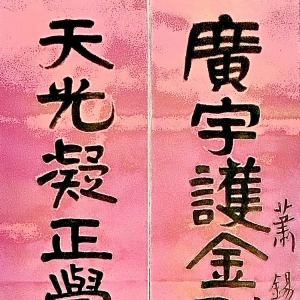 廣宇護金
天光凝正學
蕭錫